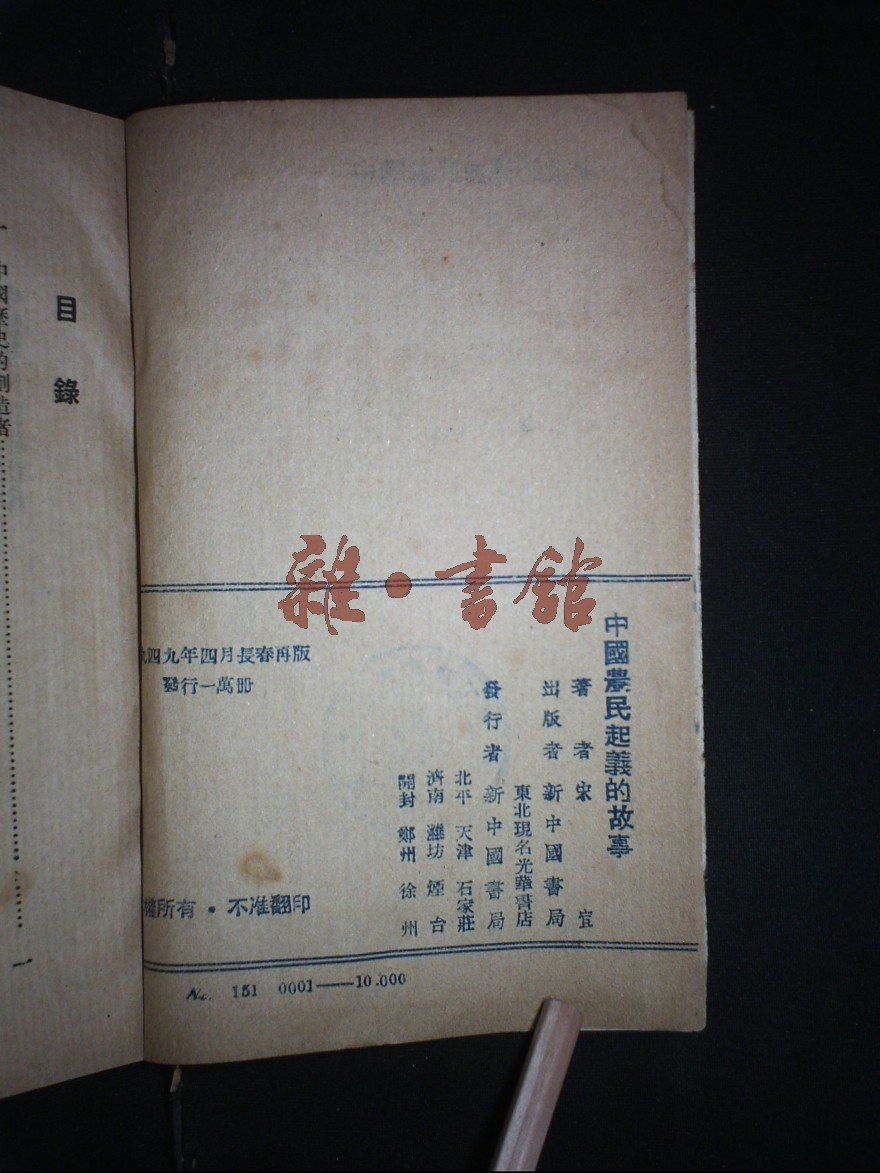 中國農民起義的故事
著者 宋宜
出版者 新中國書局
東北現名光華書店
發行者 新中國書局
北平 天津 石家莊
濟南 濰坊 煙台
開封 鄭州 徐州
九四九年四月長春再版
發行一萬冊
權所有·不准翻印
No. 151 0001——10.000
雜·書館
目錄
一 中國歷史的創造者…………一